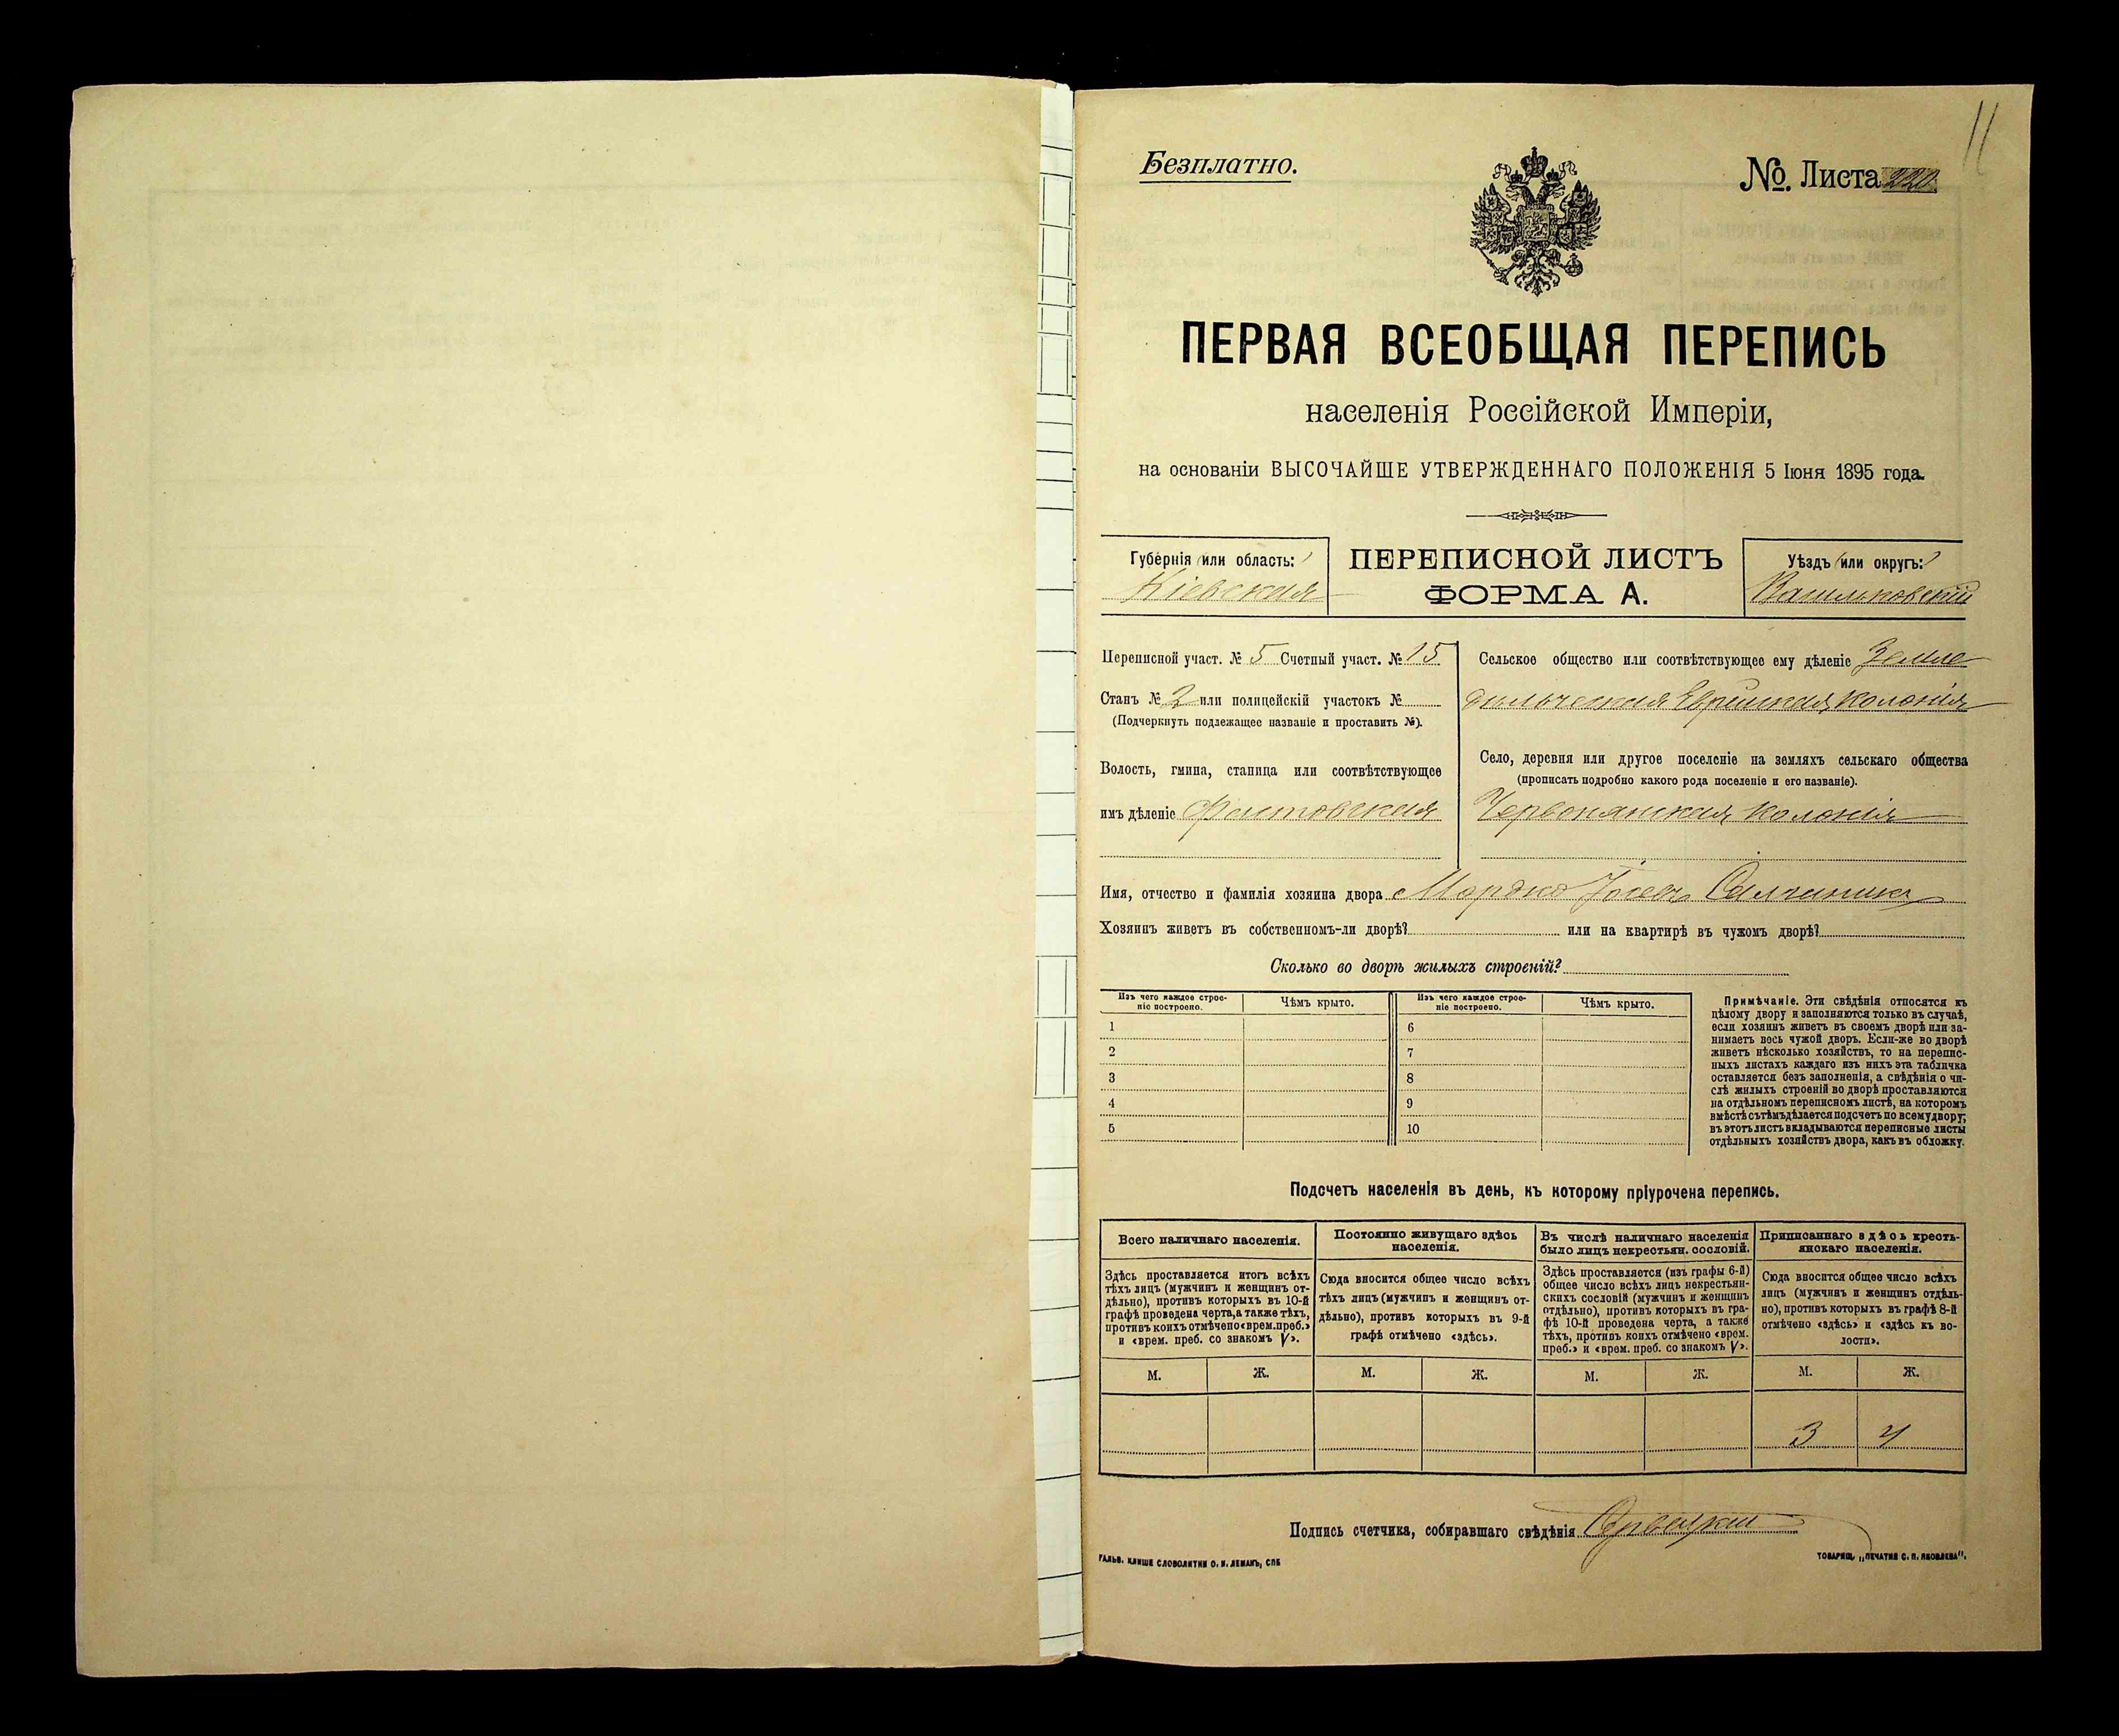 11
Безплатно.
№ Листа
ПЕРВАЯ ВСЕОБЩАЯ ПЕРЕПИСЬ
населенія Россійской Имперіи,
на основаніи ВЫСОЧАЙШЕ УТВЕРЖДЕННАГО ПОЛОЖЕНІЯ 5 Іюня 1895 года.
Губернія или область:
Кіевская
ПЕРЕПИСНОЙ ЛИСТЪ
ФОРМА А.
Уѣздъ или округъ:
Васильковскій
Переписной участ. № 5 Счетный участ. № 15
Станъ № 2 или полицейскій участокъ №
(Подчеркнуть подлежащее названіе и проставить №).
Волость, гмина, станица или соотвѣтствующее
имъ дѣленіе Фастовская
Сельское общество или соотвѣтствующее ему дѣленіе Земле
дѣльческая Еврейская колонія
Село, деревня или другое поселеніе на земляхъ сельскаго общества
(прописать подробно какого рода поселеніе и его названіе).
Червонянская колонія
Имя, отчество и фамилія хозяина двора Мордко
Хозяинъ живетъ въ собственномъ-ли дворѣ? или на квартирѣ въ чужомъ дворѣ?
Сколько во дворѣ жилыхъ строеній?
Изъ чего каждое строе-
ніе построено.
Чѣмъ крыто.
Изъ чего каждое строе-
ніе построено.
Чѣмъ крыто.
1 6
2 7
3 8
4 9
5 10
Примѣчаніе. Эти свѣдѣнія относятся къ
цѣлому двору и заполняются только въ случаѣ,
если хозяинъ живетъ въ своемъ дворѣ или за-
нимаетъ весь чужой дворъ. Если-же во дворѣ
живетъ нѣсколько хозяйствъ, то на перепис-
ныхъ листахъ каждаго изъ нихъ эта табличка
оставляется безъ заполненія, а свѣдѣнія о чи-
слѣ жилыхъ строеній во дворѣ проставляются
на отдѣльномъ переписномъ листѣ, на которомъ
вмѣстѣ съ тѣмъ дѣлается подсчетъ по всему двору;
въ этотъ листъ вкладываются переписные листы
отдѣльныхъ хозяйствъ двора, какъ въ обложку.
Подсчетъ населенія въ день, къ которому пріурочена перепись.
Всего наличнаго населенія.
Здѣсь проставляется итогъ всѣхъ
тѣхъ лицъ (мужчинъ и женщинъ от-
дѣльно), противъ которыхъ въ 10-й
графѣ проведена черта, а также тѣхъ,
противъ коихъ отмѣчено «врем. преб.»
и «врем. преб. со знакомъ V».
Постоянно живущаго здѣсь
населенія.
Сюда вносится общее число всѣхъ
тѣхъ лицъ (мужчинъ и женщинъ от-
дѣльно), противъ которыхъ въ 9-й
графѣ отмѣчено «здѣсь».
Въ числѣ наличнаго населенія
было лицъ некрестьян. сословій.
Здѣсь проставляется (изъ графы 6-й)
общее число всѣхъ лицъ некрестьян-
скихъ сословій (мужчинъ и женщинъ
отдѣльно), противъ которыхъ въ гра-
фѣ 10-й проведена черта, а также
тѣхъ, противъ коихъ отмѣчено «врем.
преб.» и «врем. преб. со знакомъ V».
Приписаннаго здѣсь кресть-
янскаго населенія.
Сюда вносится общее число всѣхъ
лицъ (мужчинъ и женщинъ отдѣль-
но), противъ которыхъ въ графѣ 8-й
отмѣчено «здѣсь» и «здѣсь къ во-
лости».
М. Ж. М. Ж. М. Ж. М. Ж.
3 4
Подпись счетчика, собиравшаго свѣдѣнія
ГАЛЬВ. КЛИШЕ СЛОВОЛИТНИ О. И. ЛЕМАНЪ, СПБ
ТОВАРИЩ. „ПЕЧАТНЯ С. П. ЯКОВЛЕВА".